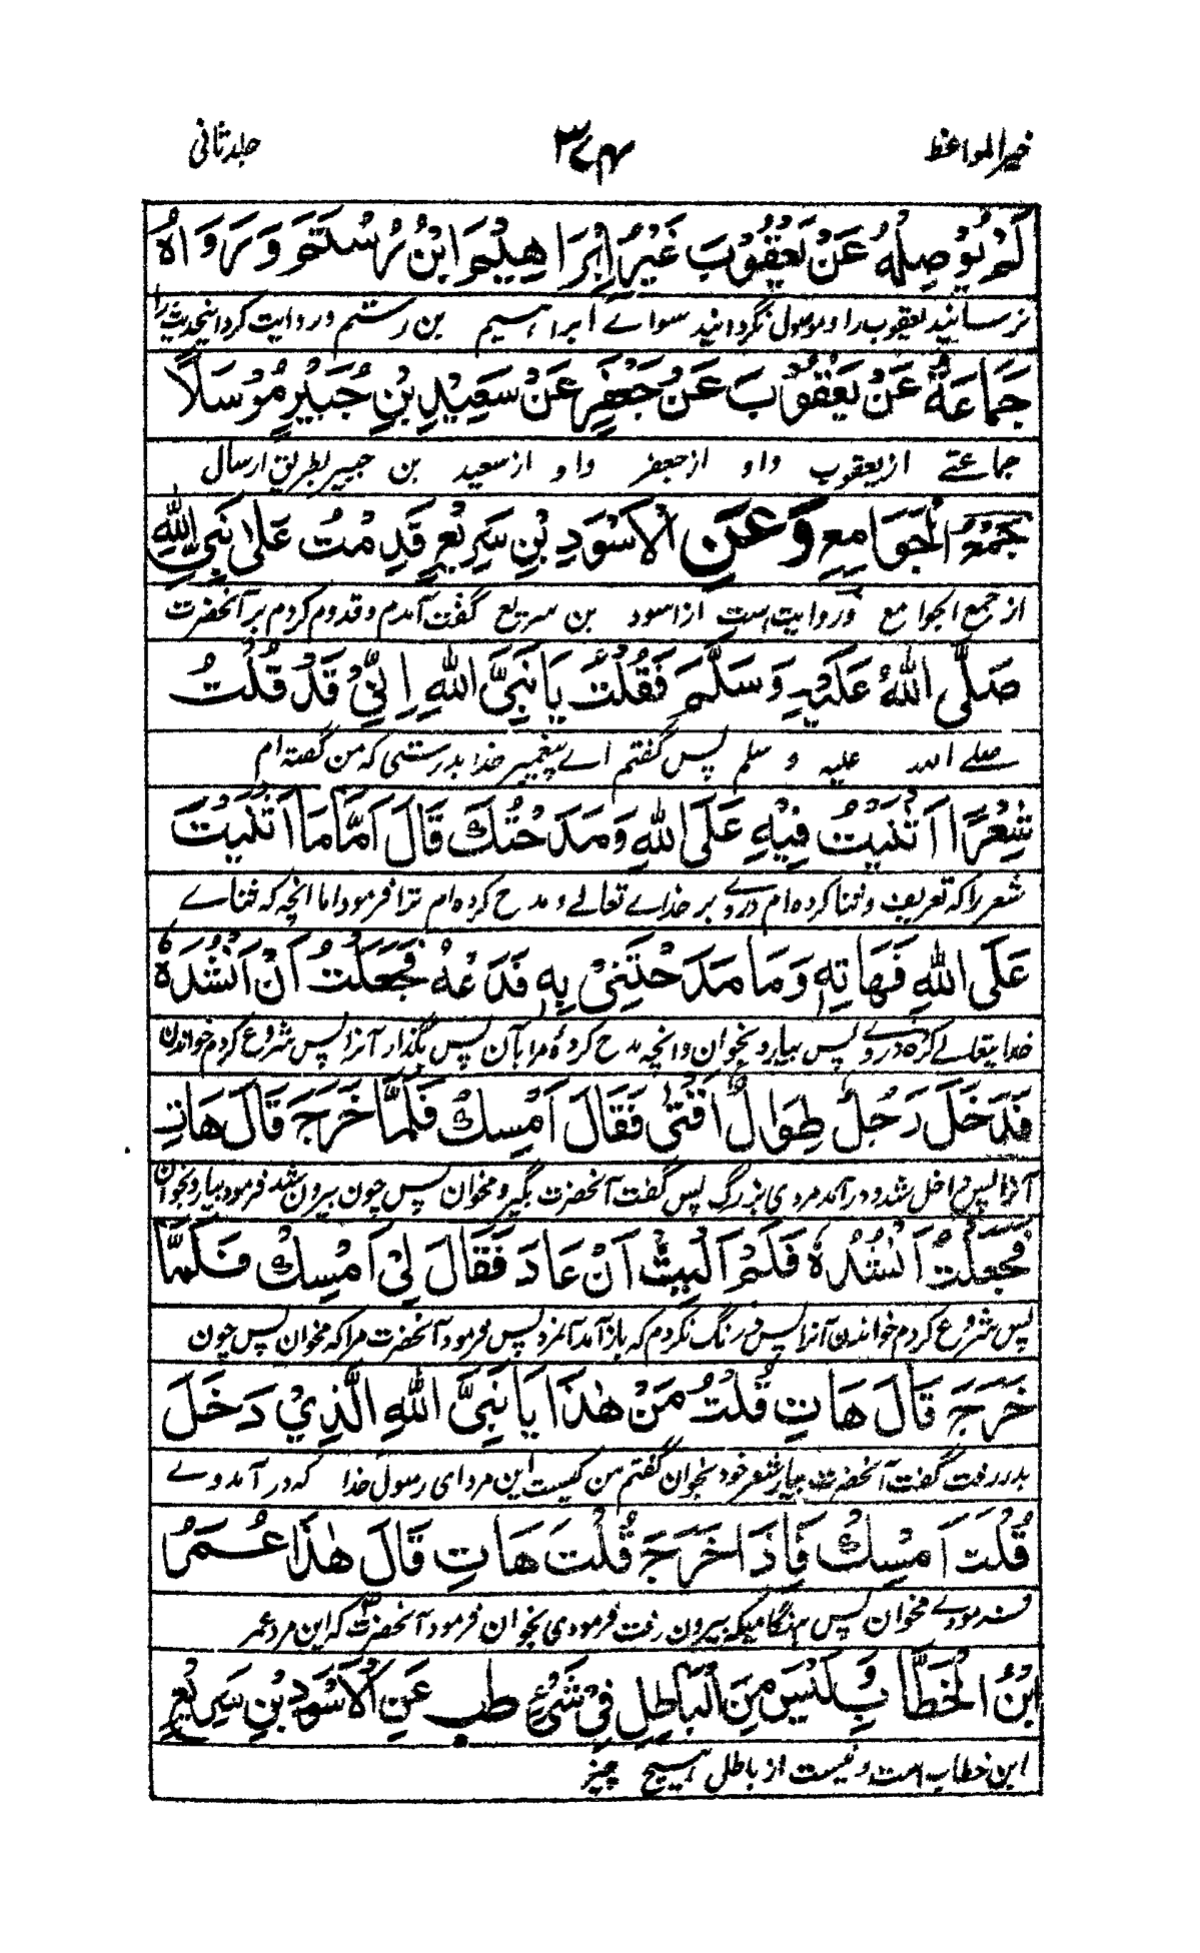 خیر المواعظ
۳۷۴
جلد ثانی
لَمْ یُوْصِلْهُ عَنْ یَعْقُوْبَ غَیْرُ اِبْرَاهِیْمَ ابْنِ رُسْتَمَ وَ رَوَاهُ
نرسانید یعقوب را و موصول نگردانید سواے ابراہیم بن رستم و روایت کرد اینحدیث را
جَمَاعَةٌ عَنْ یَعْقُوْبَ عَنْ جَعْفَرٍ عَنْ سَعِیْدِ بْنِ جُبَیْرٍ مُرْسَلًا
جماعتے از یعقوب و او از جعفر و او از سعید بن جبیر بطریق ارسال
جَمْعُ الْجَوَامِعِ وَ عَنِ الْاَسْوَدِ بْنِ سَرِیْعٍ قَدِمْتُ عَلٰی نَبِیِّ اللّٰهِ
از جمع الجوامع و روایت ست از اسود بن سریع گفت آمدم و قدوم کردم بر آنحضرت
صَلَّی اللّٰهُ عَلَیْهِ وَ سَلَّمَ فَقُلْتُ یَا نَبِیَّ اللّٰهِ اِنِّیْ قَدْ قُلْتُ
صلے اللہ علیہ و سلم پس گفتم اے پیغمبر خدا بدرستی کہ من گفتہ ام
شِعْرًا اَثْنَیْتُ فِیْهِ عَلَی اللّٰهِ وَ مَدَحْتُكَ قَالَ اَمَّا مَا اَثْنَیْتَ
شعر را کہ تعریف و ثنا کردہ ام دروے بر خداے تعالے و مدح کردہ ام ترا فرمود اما انچہ کہ ثناے
عَلَی اللّٰهِ فَهَاتِهٖ وَ مَا مَدَحْتَنِیْ بِهٖ فَدَعْهُ فَجَعَلْتُ اَنْ اُنْشِدَهٗ
خدایتعالے کردہ دروے پس بیار و بخوان و انچہ مدح کردۂ مرا بآن پس بگذار آنرا پس شروع کردم خواندن
فَدَخَلَ رَجُلٌ طِوَالٌ اَقْنٰی فَقَالَ اَمْسِكْ فَلَمَّا خَرَجَ قَالَ هَاتِ
آنرا پس داخل شد و در آمد مردی بزرگ پس گفت آنحضرت بگیر و مخوان پس چون بیرون شد فرمود بیار و بخوان
فَجَعَلْتُ اُنْشِدُهٗ فَلَمْ اَلْبَثْ اَنْ عَادَ فَقَالَ لِیْ اَمْسِكْ فَلَمَّا
پس شروع کردم خواندن آنرا پس درنگ نکردم کہ باز آمد آنمرد پس فرمود آنحضرت مرا کہ مخوان پس چون
خَرَجَ قَالَ هَاتِ قُلْتُ مَنْ هٰذَا یَا نَبِیَّ اللّٰهِ الَّذِیْ دَخَلَ
بدر رفت گفت آنحضرت بیار شعر خود بخوان گفتم من کیست این مرد ای رسول خدا کہ در آمد وے
قُلْتَ اَمْسِكْ فَاِذَا خَرَجَ قُلْتَ هَاتِ قَالَ هٰذَا عُمَرُ
فرمودے مخوان پس ہنگامیکہ بیرون رفت فرمودی بخوان فرمود آنحضرت کہ این مرد عمر
ابْنُ الْخَطَّابِ وَ لَیْسَ مِنَ الْبَاطِلِ فِیْ شَیْءٍ طب عَنِ الْاَسْوَدِ بْنِ سَرِیْعٍ
ابن خطاب است و نیست از باطل ہیچ چیز